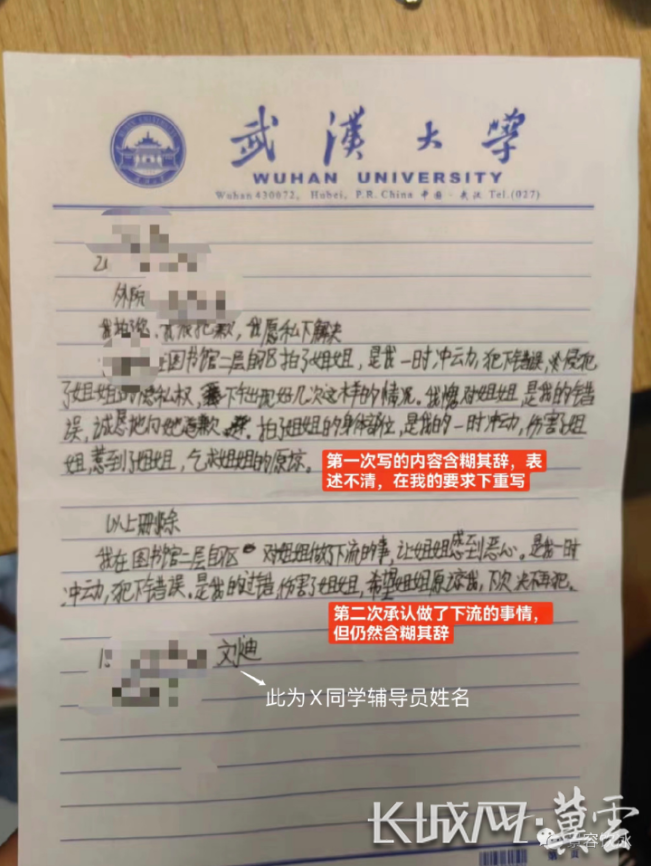 武漢大學
WUHAN UNIVERSITY
Wuhan 430072, Hubei, P.R. China 中国·武汉 Tel.(027)
外院
我愿私下解决
在图书馆二层自习区拍了姐姐，是我一时冲动，犯下错误，侵犯
了姐姐的隐私权，下午出现好几次这样的情况。我愧对姐姐，是我的错
误，诚恳地向她道歉。拍了姐姐的身体部位，是我的一时冲动，伤害了姐
姐，惹到了姐姐，乞求姐姐的原谅。
第一次写的内容含糊其辞，表
述不清，在我的要求下重写
以上删除
我在图书馆二层自习区对姐姐做了下流的事，让姐姐感到恶心。是我一时
冲动，犯下错误。是我的过错，伤害了姐姐，希望姐姐原谅我，下次决不再犯。
第二次承认做了下流的事情，
但仍然含糊其辞
刘迪
此为X同学辅导员姓名
长城网·冀云